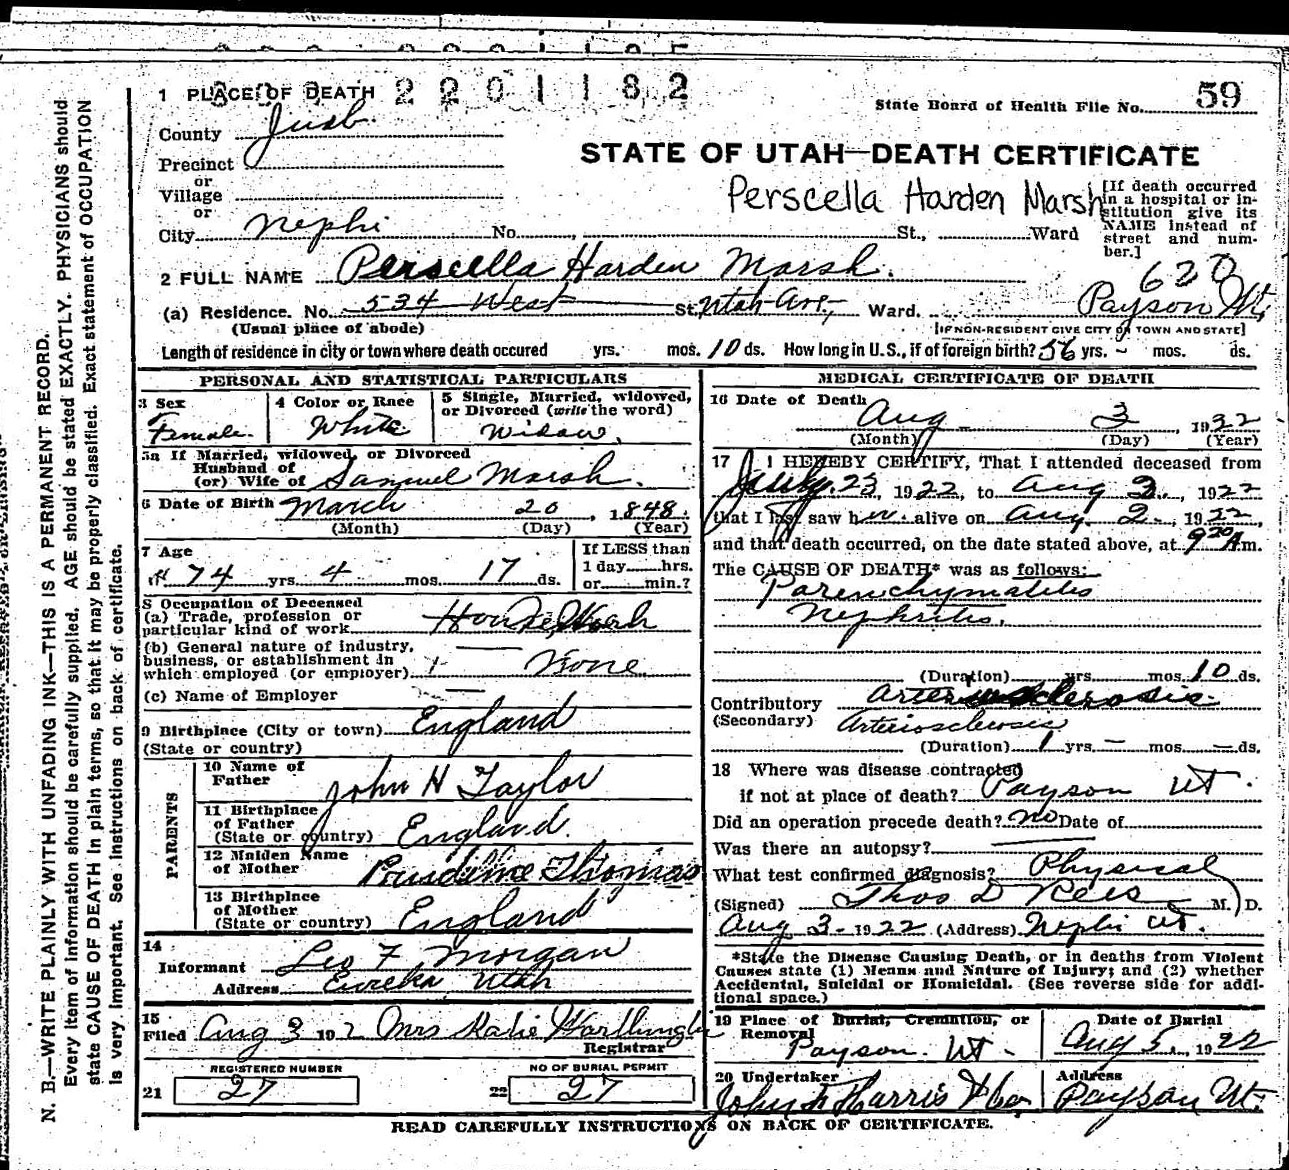 2201182
1 PLACE OF DEATH
State Board of Health File No. 59
County Juab
STATE OF UTAH—DEATH CERTIFICATE
Precinct
or
Village
or
Perscella Harden Marsh
[If death occurred in a hospital or institution give its NAME instead of street and number.]
City Nephi No. St., Ward
2 FULL NAME Perscella Harden Marsh.
620
(a) Residence. No. 534 West St. Utah Ave., Ward. Payson Ut.
(Usual place of abode)
[IF NON-RESIDENT GIVE CITY OR TOWN AND STATE]
Length of residence in city or town where death occured yrs. mos. 10 ds. How long in U.S., if of foreign birth? 56 yrs. - mos. ds.
PERSONAL AND STATISTICAL PARTICULARS
3 Sex Female.
4 Color or Race White
5 Single, Married, widowed, or Divorced (write the word) Widow.
5a If Married, widowed, or Divorced
Husband of
(or) Wife of Samuel Marsh.
6 Date of Birth March 20, 1848.
(Month) (Day) (Year)
7 Age
74 yrs. 4 mos. 17 ds.
If LESS than
1 day hrs.
or min.?
8 Occupation of Deceased
(a) Trade, profession or
particular kind of work House Work
(b) General nature of industry,
business, or establishment in
which employed (or employer) None
(c) Name of Employer
9 Birthplace (City or town) England
(State or country)
PARENTS
10 Name of
Father John H Taylor
11 Birthplace
of Father
(State or country) England.
12 Maiden Name
of Mother Thomas
13 Birthplace
of Mother
(State or country) England
14
Informant Leo F. Morgan
Address Eureka, Utah
15
Filed Aug 3 192 Mrs Katie
Registrar
REGISTERED NUMBER
21 27
NO OF BURIAL PERMIT
22 27
MEDICAL CERTIFICATE OF DEATH
16 Date of Death
Aug 3, 1922
(Month) (Day) (Year)
17 I HEREBY CERTIFY, That I attended deceased from
July 23, 1922, to Aug 3, 1922
that I last saw her alive on Aug 2, 1922,
and that death occurred, on the date stated above, at 9 20 A m.
The CAUSE OF DEATH* was as follows:
Parenchymatus
Nephritis.
(Duration) yrs. mos. 10 ds.
Contributory Arteriosclerosis
(Secondary) Arteriosclerosis
(Duration) 1 yrs. — mos. — ds.
18 Where was disease contracted
if not at place of death? Payson Ut.
Did an operation precede death? No Date of
Was there an autopsy?
What test confirmed diagnosis? Physical
(Signed) Thos D Rees M. D.
Aug 3 - 1922 (Address) Nephi Ut.
*State the Disease Causing Death, or in deaths from Violent
Causes state (1) Means and Nature of Injury; and (2) whether
Accidental, Suicidal or Homicidal. (See reverse side for additional space.)
19 Place of Burial, Cremation, or
Removal
Payson. Ut.
Date of Burial
Aug 5., 1922
20 Undertaker
Address
Payson Ut.
READ CAREFULLY INSTRUCTIONS ON BACK OF CERTIFICATE.
N. B.—WRITE PLAINLY WITH UNFADING INK—THIS IS A PERMANENT RECORD.
Every item of information should be carefully supplied. AGE should be stated EXACTLY. PHYSICIANS should
state CAUSE OF DEATH in plain terms, so that it may be properly classified. Exact statement of OCCUPATION
is very important. See instructions on back of certificate.